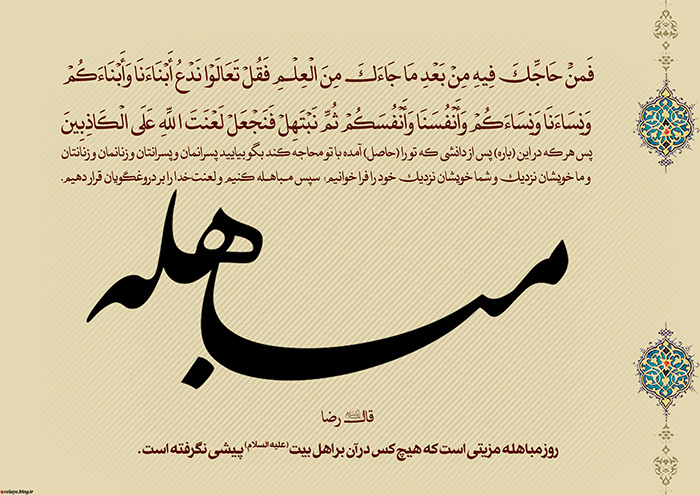 فَمَنْ حَاجَّكَ فِيهِ مِنْ بَعْدِ مَا جَاءَكَ مِنَ الْعِلْمِ فَقُلْ تَعَالَوْا نَدْعُ أَبْنَاءَنَا وَأَبْنَاءَكُمْ
وَنِسَاءَنَا وَنِسَاءَكُمْ وَأَنْفُسَنَا وَأَنْفُسَكُمْ ثُمَّ نَبْتَهِلْ فَنَجْعَلْ لَعْنَتَ اللَّهِ عَلَى الْكَاذِبِينَ
پس هر که در این (باره) پس از دانشی که تو را (حاصل) آمده با تو محاجه کند بگو بیایید پسرانمان و پسرانتان و زنانمان و زنانتان
و ما خویشان نزدیک و شما خویشان نزدیک خود را فرا خوانیم؛ سپس مباهله کنیم و لعنت خدا را بر دروغگویان قرار دهیم.
مباهله
قال رضا علیه السلام
روز مباهله مزیتی است که هیچ کس در آن بر اهل بیت (علیه السلام) پیشی نگرفته است.
velaye.blog.ir